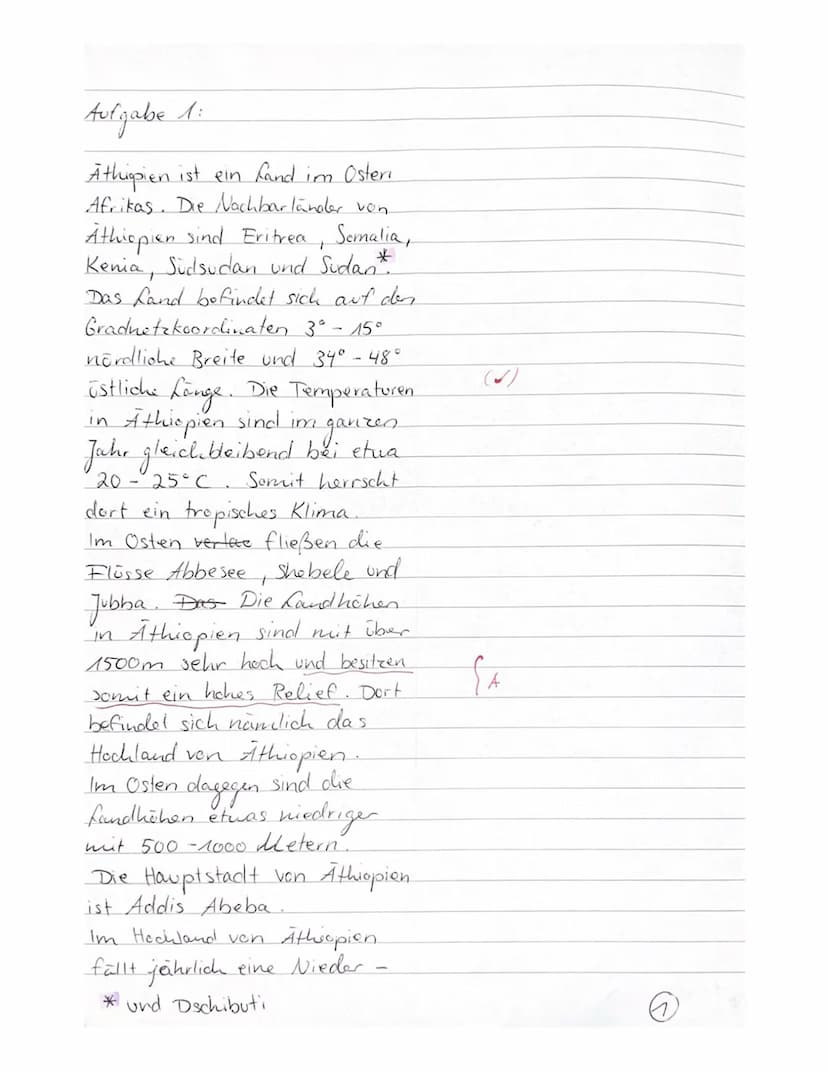 Aufgabe 1:
Äthiopien ist ein Land im Osten
Afrikas. Die Nachbarländer von
Äthiopien sind Eritrea, Somalia,
Kenia, Südsudan und Sudan*.
Das Land befindet sich auf den
Gradnetzkoordinaten 3° - 15°
nördliche Breite und 34° - 48°
östliche Länge. Die Temperaturen (✓)
in Äthiopien sind im ganzen
Jahr gleichbleibend bei etwa
20 - 25°C. Somit herrscht
dort ein tropisches Klima.
Im Osten fließen die
Flüsse Abbesee, Shebele und
Jubba. Das Die Landhöhen
in Äthiopien sind mit über
1500m sehr hoch und besitzen
somit ein hohes Relief. Dort A
befindet sich nämlich das
Hochland von Äthiopien.
Im Osten dagegen sind die
Landhöhen etwas niedriger
mit 500 - 1000 Metern.
Die Hauptstadt von Äthiopien
ist Addis Abeba.
Im Hochland von Äthiopien
fällt jährlich eine Nieder -
* und Dschibuti
1